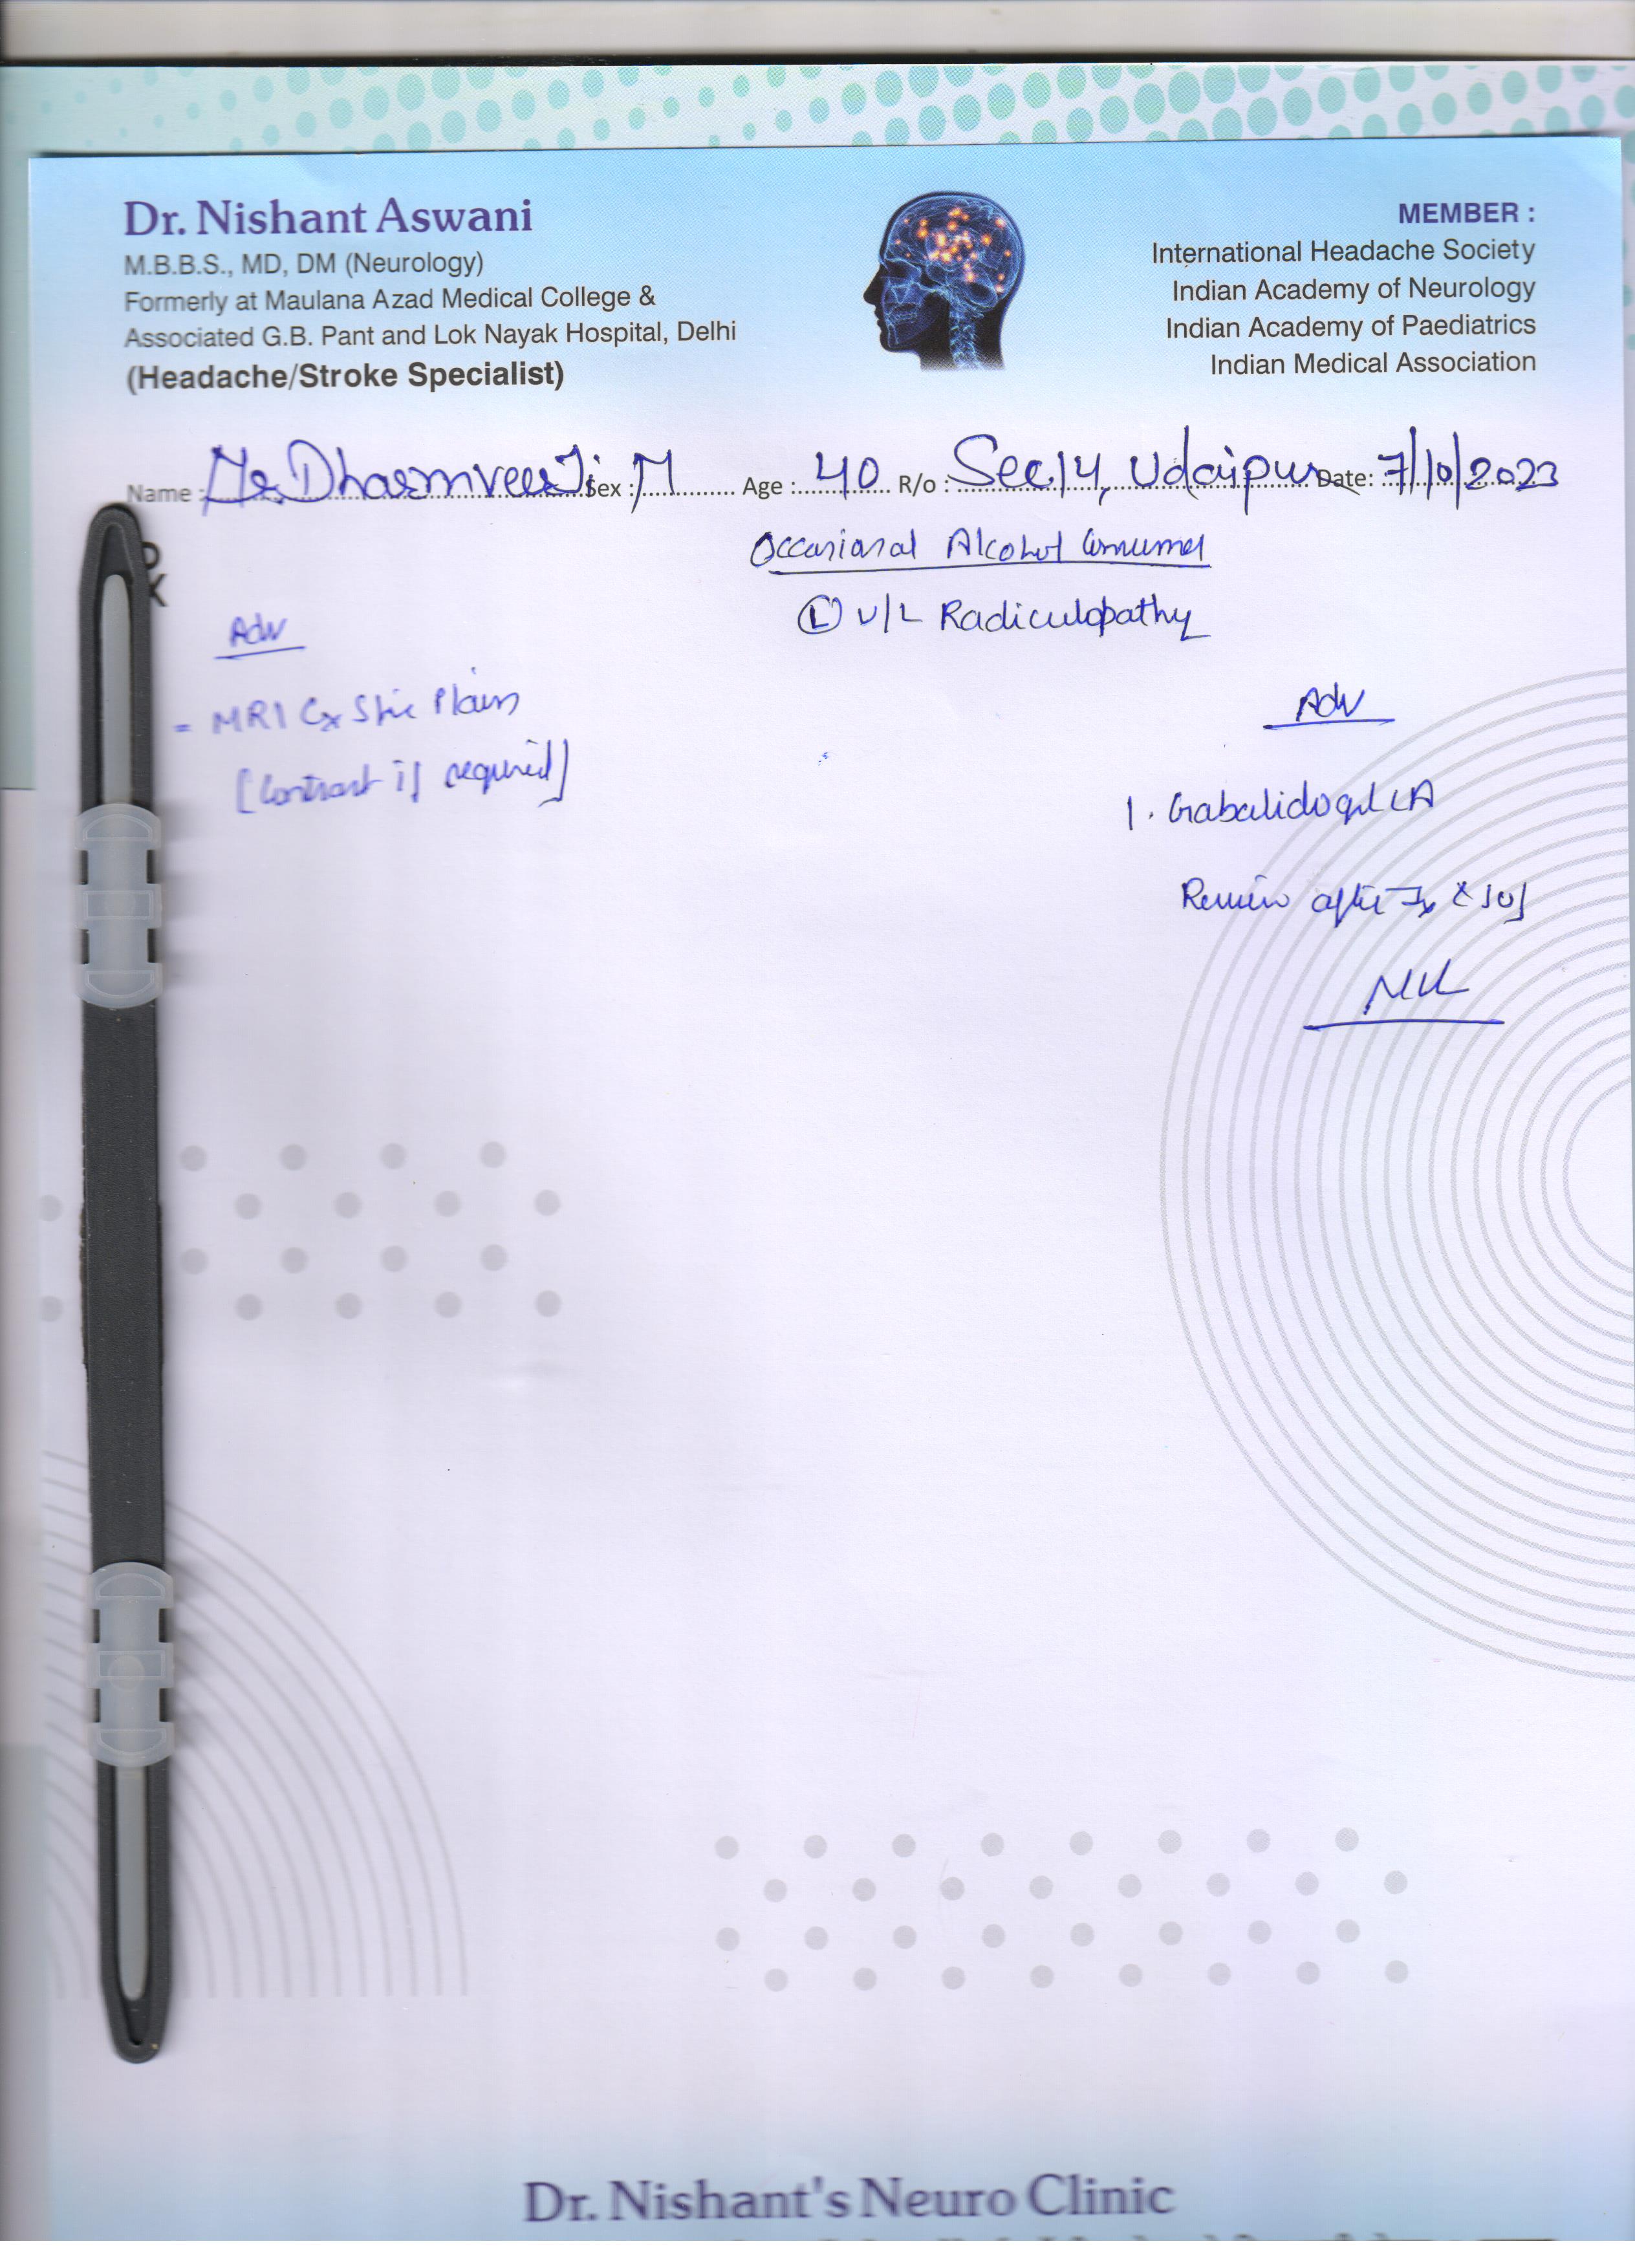 Dr. Nishant Aswani
M.B.B.S., MD, DM (Neurology)
Formerly at Maulana Azad Medical College &
Associated G.B. Pant and Lok Nayak Hospital, Delhi
(Headache/Stroke Specialist)
MEMBER :
International Headache Society
Indian Academy of Neurology
Indian Academy of Paediatrics
Indian Medical Association
Name : Mr. Dharmveer Ji Sex : M Age : 40 R/o : Sec.14, Udaipur Date: 7/10/2023
Occasional Alcohol Consumer
Ⓛ U/L Radiculopathy
Adv
- MRI Cx Spine Plain
[Contrast if required]
Adv
1. Gabalidogel LA
Review after
Dr. Nishant's Neuro Clinic